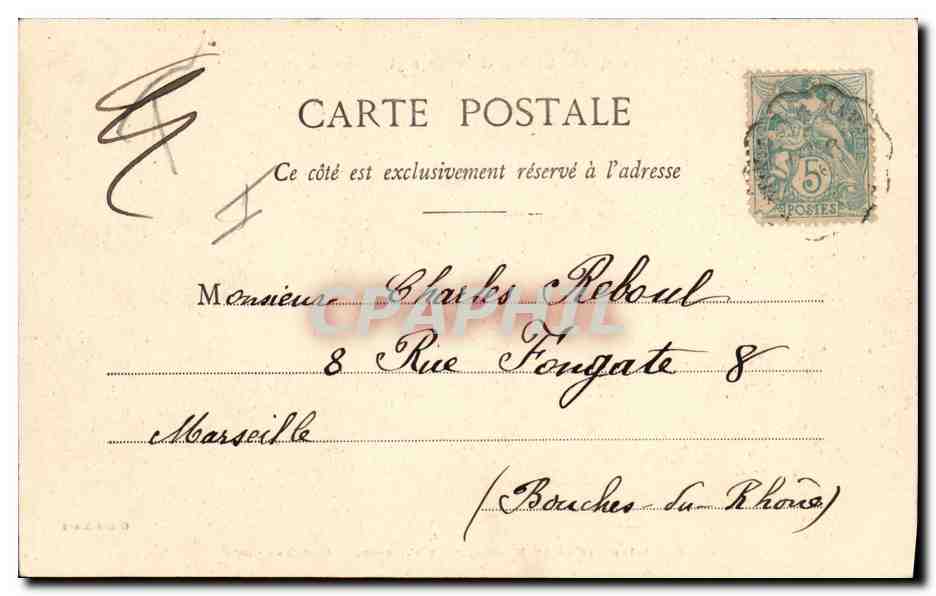 CARTE POSTALE
Ce côté est exclusivement réservé à l'adresse
5c
POSTES
Monsieur Charles Reboul
CPAPHIL
8 Rue Fongate 8
Marseille
(Bouches-du-Rhône)